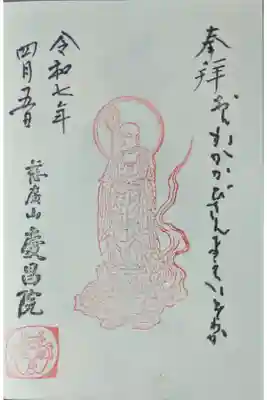 奉拝
おんかかかびさんまえいそわか
令和七年
四月五日
慶昌院